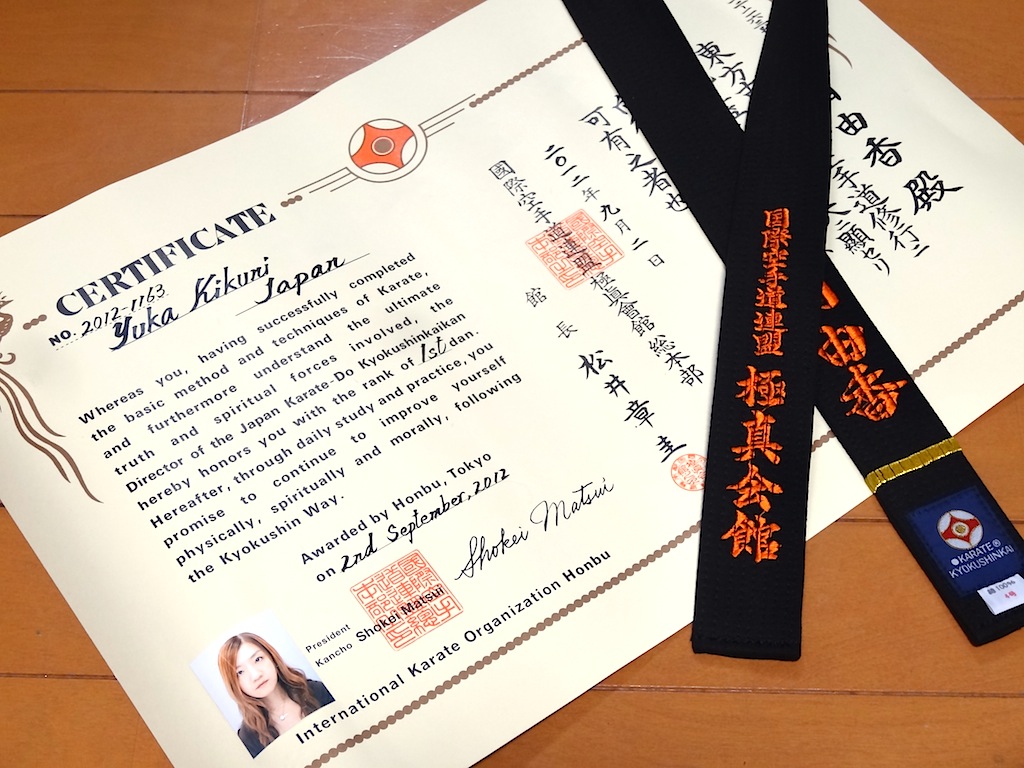 CERTIFICATE
NO. 2012-1163
Yuka Kikuni
Japan
Whereas you, having successfully completed
the basic method and techniques of Karate,
and furthermore understand the ultimate
truth and spiritual forces involved, the
Director of the Japan Karate-Do Kyokushinkaikan
hereby honors you with the rank of 1st dan.
Hereafter, through daily study and practice, you
promise to continue to improve yourself
physically, spiritually and morally, following
the Kyokushin Way.
Awarded by Honbu, Tokyo
on 2nd September, 2012
Shokei Matsui
President
Kancho Shokei Matsui
International Karate Organization Honbu
由香殿
手道修行ニ
顯セリ
東方
可有之者也
二〇一二年九月二日
國際空手道連盟極眞會館総本部
館長 松井章圭
国際空手道連盟 極真会館
由香
KARATE®
KYOKUSHINKAI
綿100%